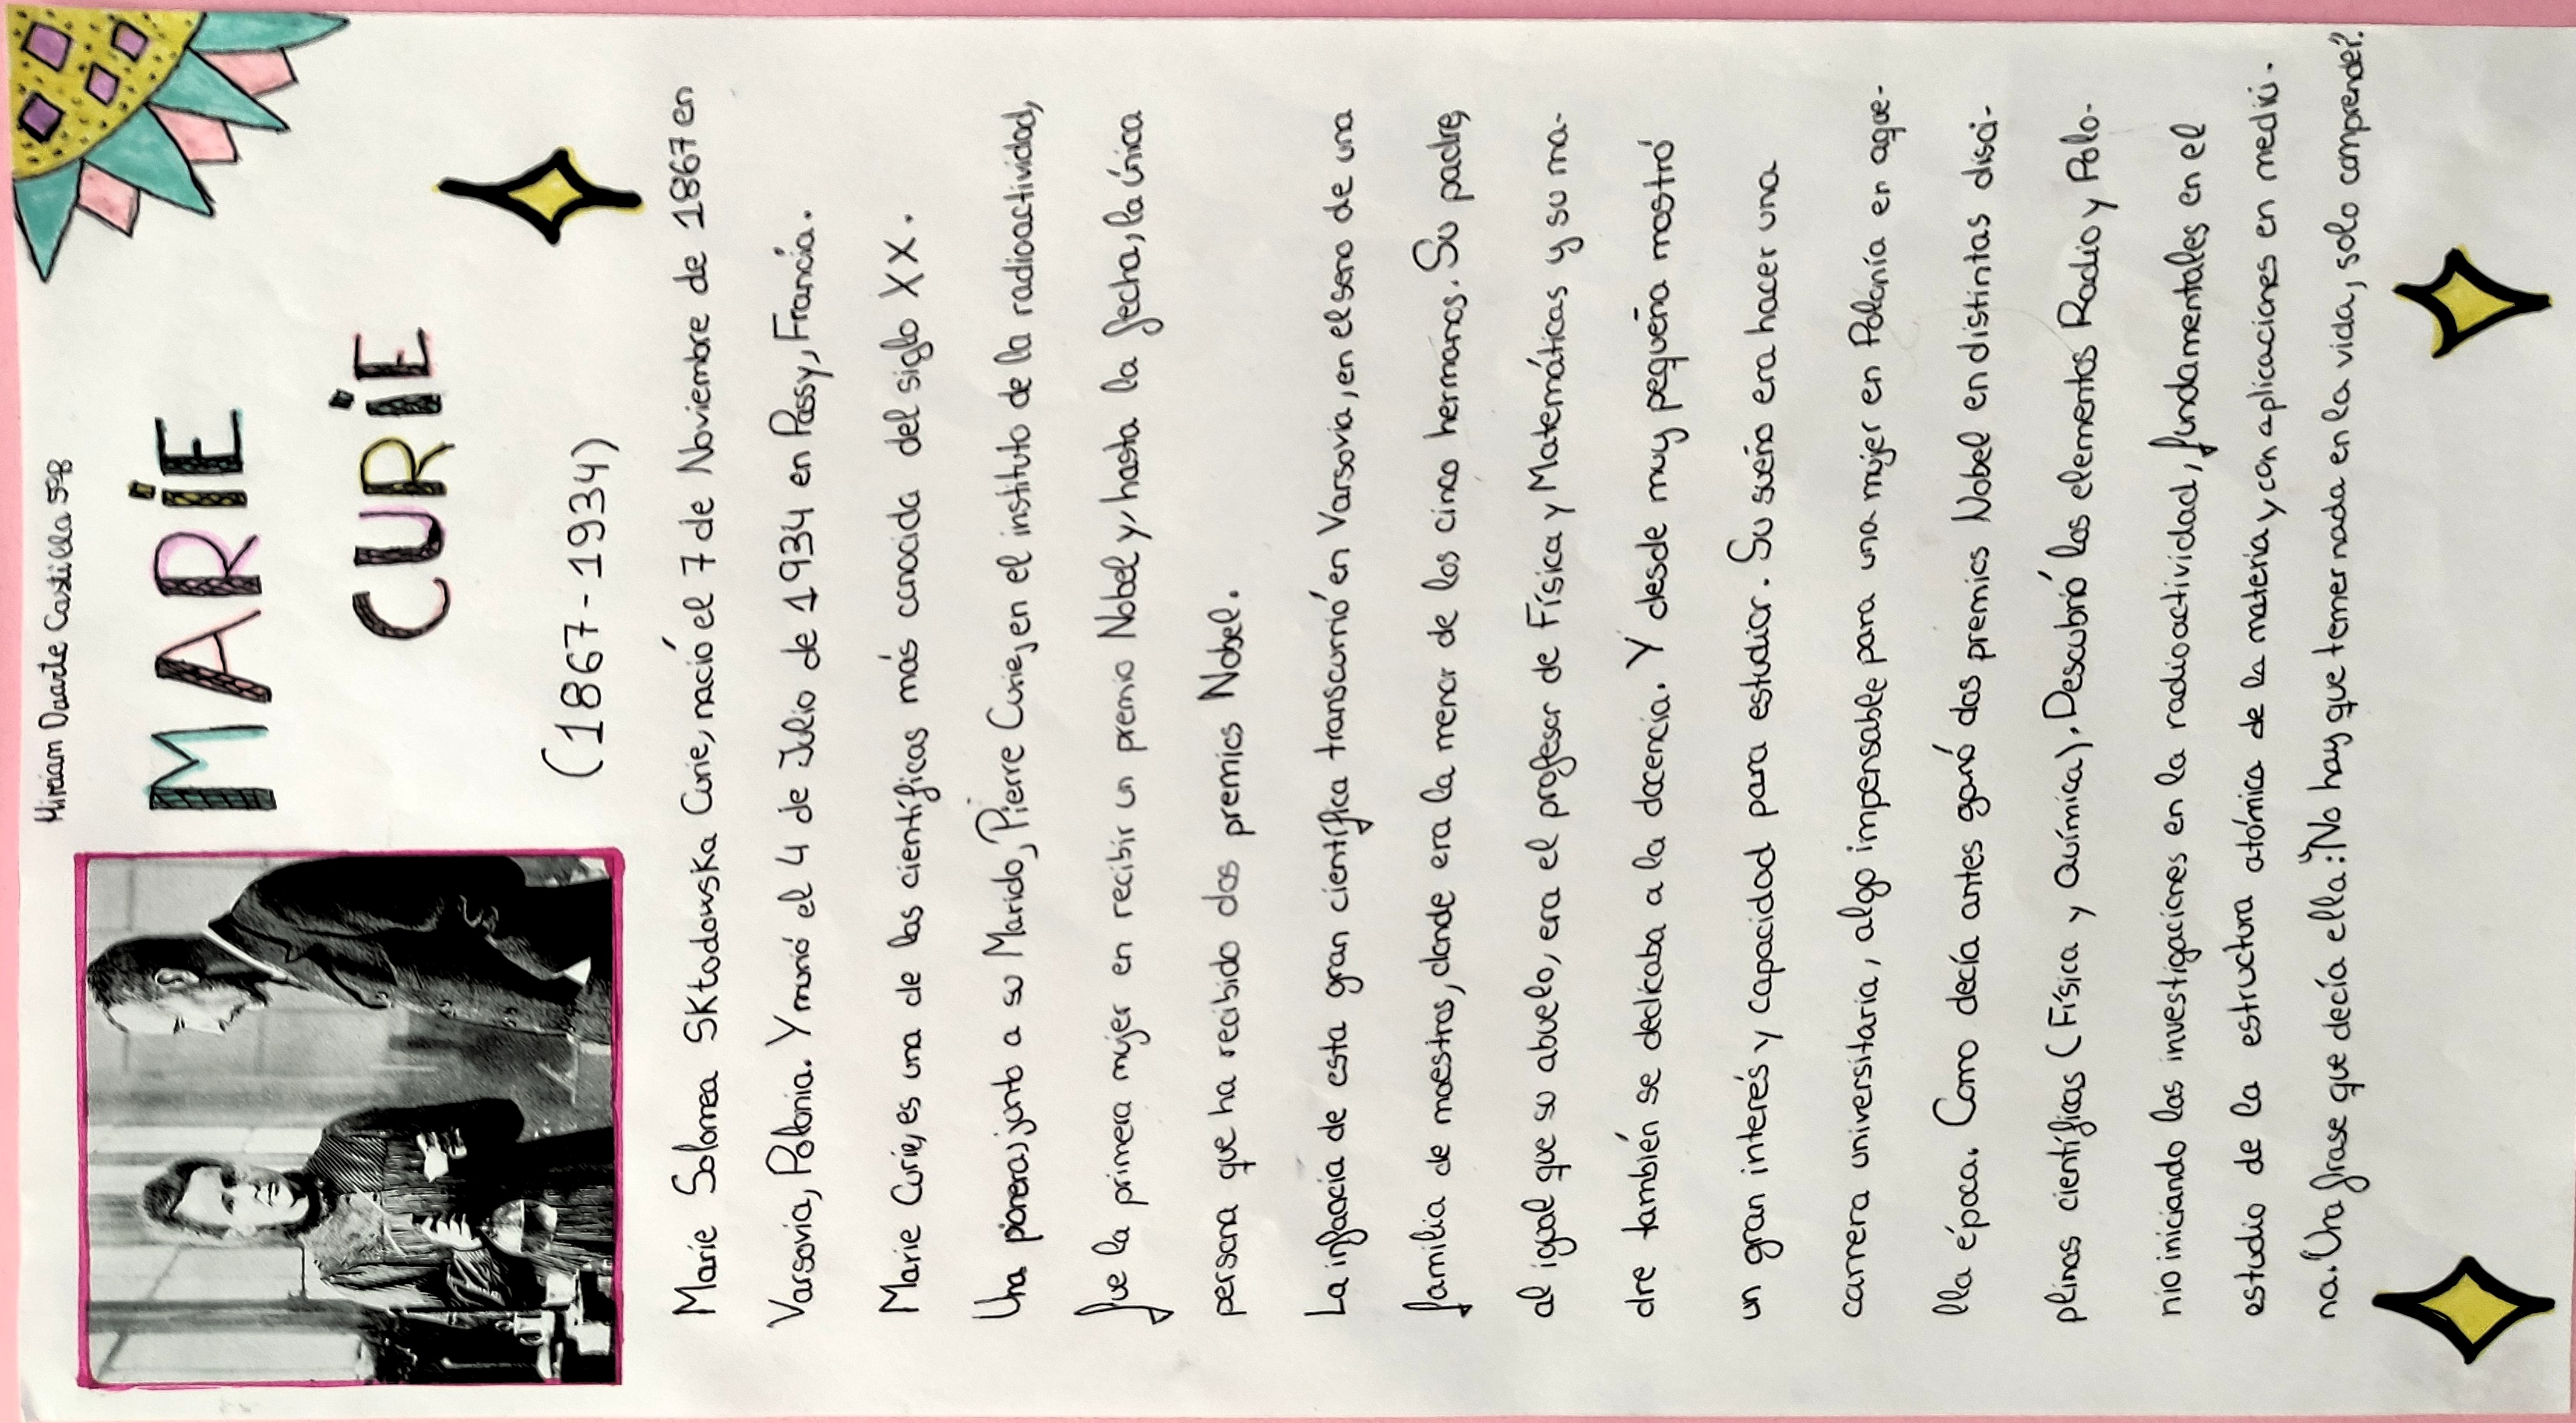 Miriam Duarte Castilla 5ºB
MARIE
CURIE
(1867-1934)
Marie Solomea Sktodowska Curie, nació el 7 de Noviembre de 1867 en
Varsovia, Polonia. Y murió el 4 de Julio de 1934 en Passy, Francia.
Marie Curie, es una de las científicas más conocida del siglo XX.
Una pionera, junto a su Marido, Pierre Curie, en el instituto de la radioactividad,
fue la primera mujer en recibir un premio Nobel y, hasta la fecha, la única
persona que ha recibido dos premios Nobel.
La infancia de esta gran científica transcurrió en Varsovia, en el seno de una
familia de maestros, donde era la menor de los cinco hermanos. Su padre,
al igual que su abuelo, era el profesor de Física y Matemáticas y su ma-
dre también se dedicaba a la docencia. Y desde muy pequeña mostró
un gran interés y capacidad para estudiar. Su sueño era hacer una
carrera universitaria, algo impensable para una mujer en Polonia en aque-
lla época. Como decía antes ganó dos premios Nobel en distintas disci-
plinas científicas (Física y Química). Descubrió los elementos Radio y Polo-
nio iniciando las investigaciones en la radioactividad, fundamentales en el
estudio de la estructura atómica de la materia y con aplicaciones en medici-
na. Una frase que decía ella: "No hay que temer nada en la vida, solo comprender".